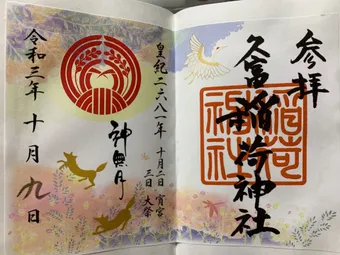 参拝
久富稲荷神社
皇紀二六八一年 十月二日 宵宮
三日 大祭
神無月
令和三年十月九日